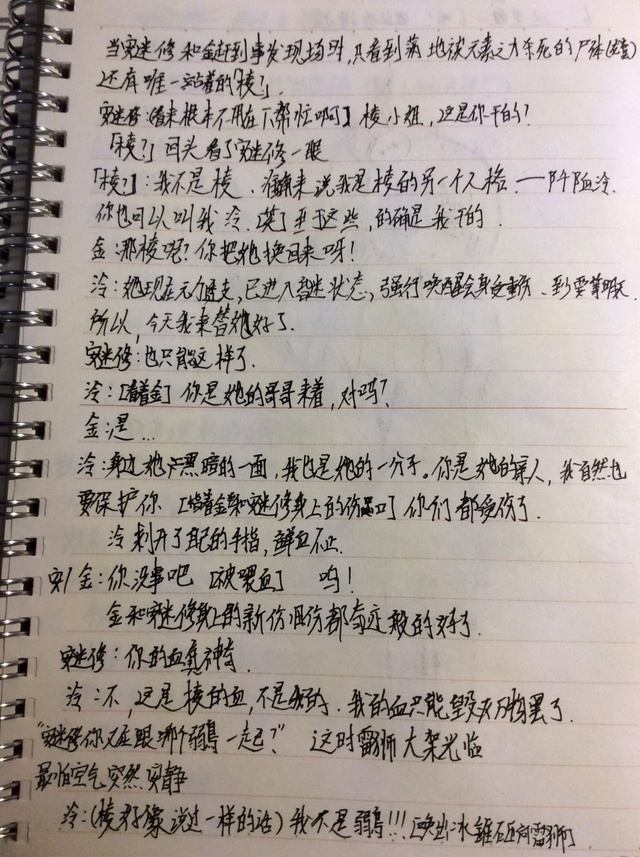 当安迷修和金赶到事发现场时，只看到满地被元素之力杀死的尸体(虚)
还有唯一站着的「棱？」
安迷修：[看来根本不用在下帮忙啊] 棱小姐，这是你干的？
「棱？」回头看了安迷修一眼
「棱？」：我不是棱，准确来说我是棱的另一个人格——阡陌冷
你也可以叫我冷，至于这些，的确是我干的.
金：那棱呢？你把她换回来呀！
冷：她现在元力透支，已进入昏迷状态，强行唤醒会身受重伤、
所以，今天我来替她好了.
安迷修：也只能这样了.
冷：[看着金] 你是她的哥哥来着，对吗？
金：是...
冷：身边她黑暗的一面，我也是她的一分子。你是她的家人，我自然也
要保护你 [看着金和安迷修身上的伤口] 你们都受伤了.
冷刺开了自己的手指，鲜血不止.
安/金：你没事吧 [被喂血] 呜！
金和安迷修身上的新伤旧伤都奇迹般的好了.
安迷修：你的血真神奇.
冷：不，这是棱的血，不是我的.我的血只能毁灭万物罢了.
“安迷修你又在跟哪个弱鸟一起？” 这时雷狮大架光临
最怕空气突然安静
冷：(棱好像说过一样的话) 我不是弱鸟!!! [唤出冰锥砸向雷狮]